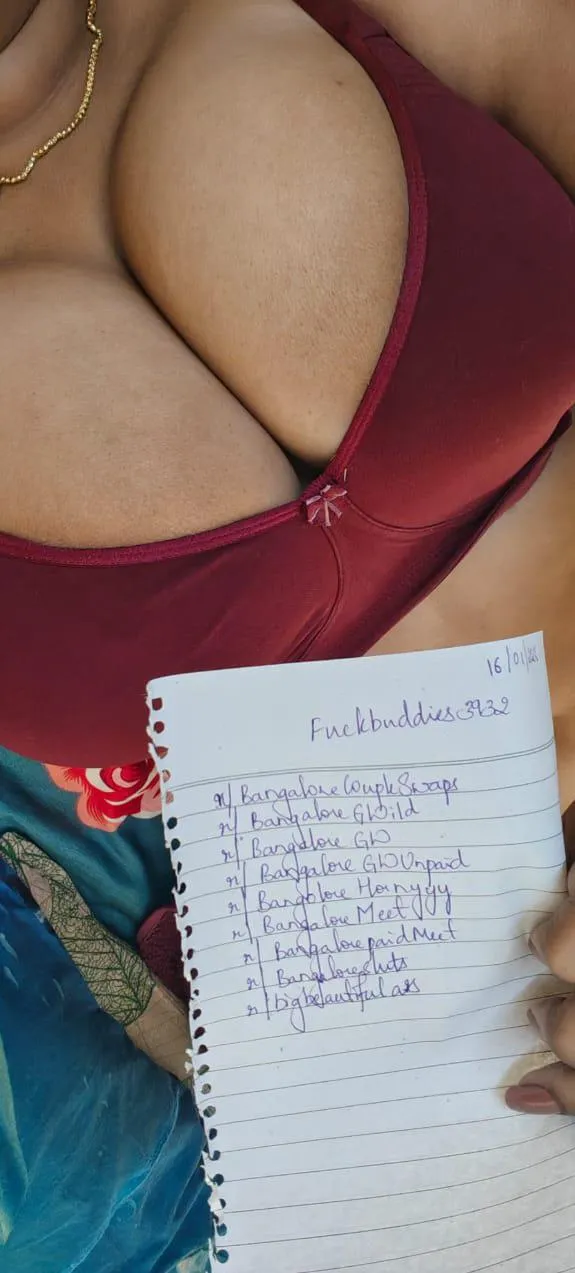 16/01/
Fuckbuddies3932
r/BangaloreCoupleSwaps
r/Bangalore GWild
r/Bangalore GW
r/Bangalore GWUnpaid
r/Bangalore Hornyyy
r/Bangalore Meet
r/BangalorepaidMeet
r/Bangaloresluts
r/bigbeautifulass